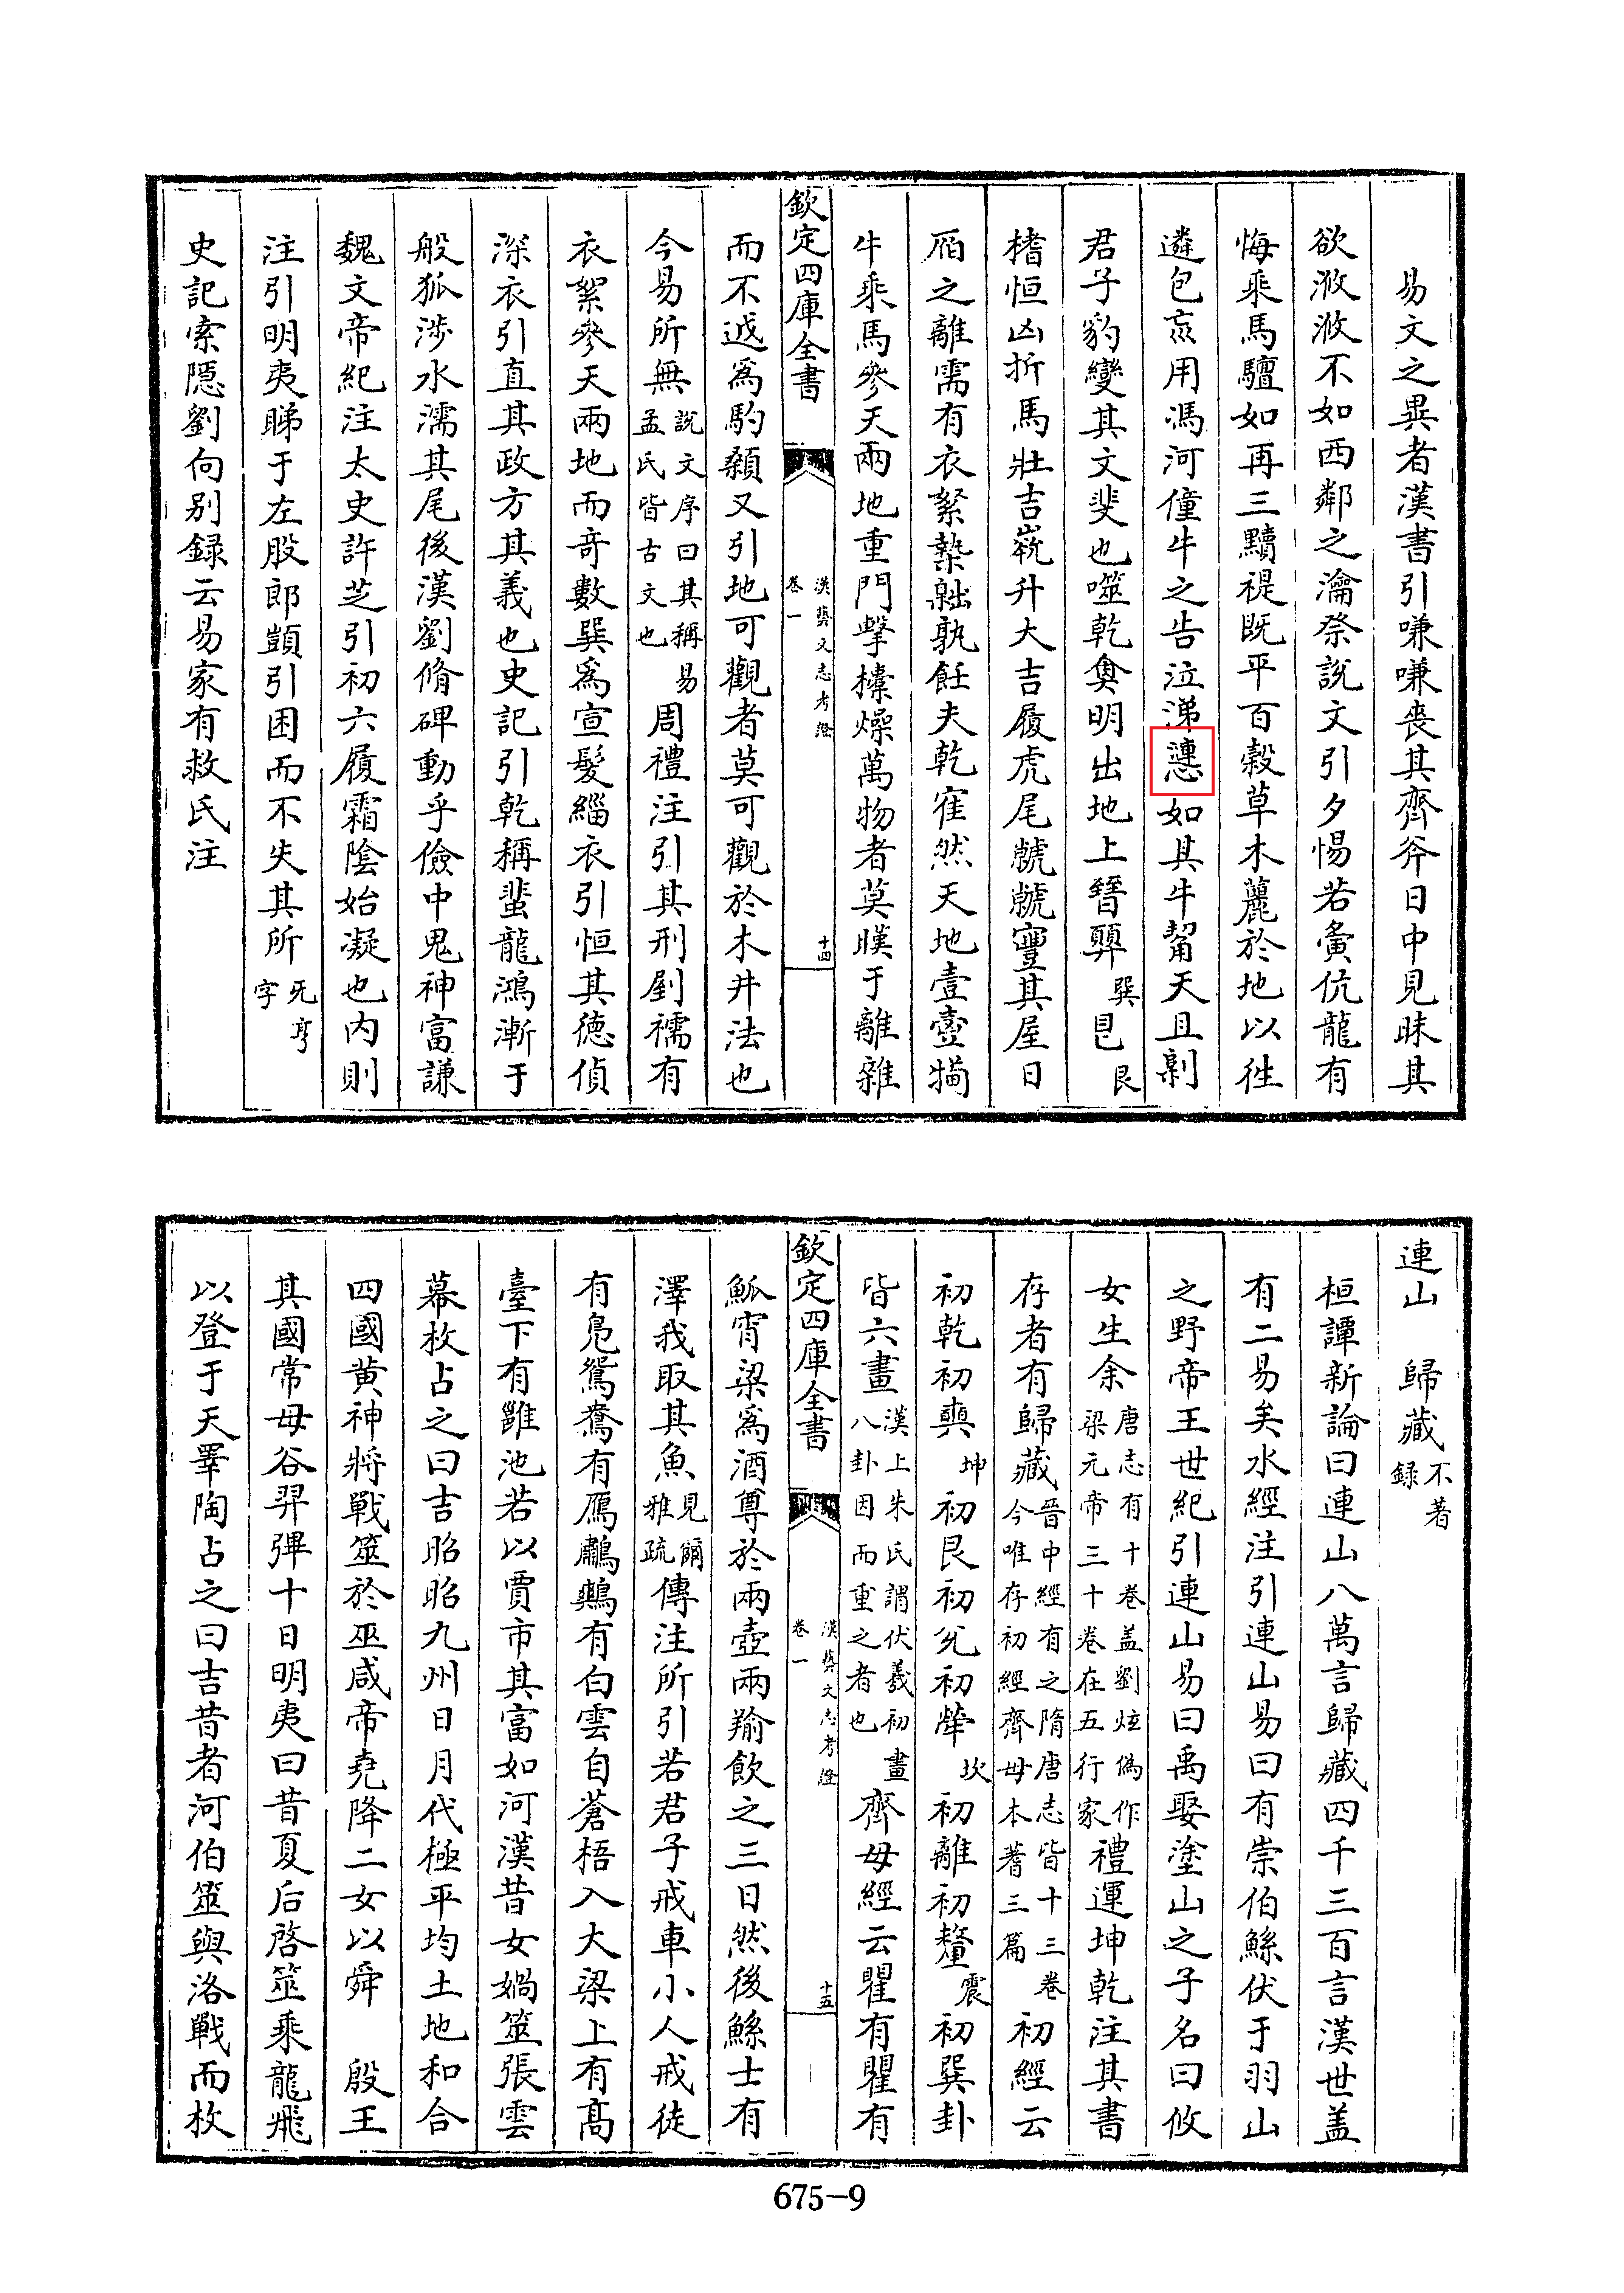 易文之異者漢書引嗛嗛喪其齊斧日中見昧其
欲浟浟不如西鄰之瀹祭說文引夕惕若夤伉龍有
悔乘馬驙如再三黷褆既平百穀草木麗於地以往
遴包巟用馮河僮牛之告泣涕㦁如其牛觢天且劓
君子豹變其文斐也噬乾𠔽明出地上㬜顨巽皀艮
榰恒凶拼馬壯吉𡴞升大吉履虎尾虩虩寷其屋日
𢈔之離需有衣絮槷䵳孰飪夫乾寉然天地壹壺犕
牛乘馬參天兩地重門擊㯓燥萬物者莫暵于離雜
欽定四庫全書
漢藝文志考證
卷一
十四
而不越爲駒顙又引地可觀者莫可觀於木井法也
今易所無說文序曰其稱易孟氏皆古文也周禮注引其刑剭襦有
衣絮參天兩地而竒數巽爲宣髮緇衣引恒其德偵
深衣引直其政方其義也史記引乾稱蜚龍鴻漸于
般狐渉水濡其尾後漢劉脩碑動乎儉中鬼神富謙
魏文帝紀注太史許芝引初六履霜陰始凝也内則
注引明夷睇于左股郎顗引困而不失其所旡亨字
史記索隠劉向别録云易家有救氏注
連山　歸藏不著録
桓譚新論曰連山八萬言歸藏四千三百言漢世盖
有二易矣水經注引連山易曰有崇伯鯀伏于羽山
之野帝王世紀引連山易曰禹娶塗山之子名曰攸
女生余唐志有十卷盖劉炫僞作梁元帝三十卷在五行家禮運坤乾注其書
存者有歸藏晉中經有之隋唐志皆十三卷今唯存初經齊母本蓍三篇初經云
初乾初奭坤初艮初兊初犖坎初離初釐震初巽卦
皆六畫漢上朱氏謂伏羲初畫八卦因而重之者也齊母經云瞿有瞿有
欽定四庫全書
漢藝文志考證
卷一
十五
觚宵梁爲酒尊於兩壺兩羭飲之三日然後鯀士有
澤我取其魚見爾雅疏傳注所引若君子戒車小人戒徒
有鳧鴛鴦有鴈鷫鷞有白雲自蒼梧入大梁上有髙
臺下有雝池若以賈市其富如河漢昔女媧筮張雲
幕枚占之曰吉昭昭九州日月代極平均土地和合
四國黄神將戰筮於巫咸帝堯降二女以舜　殷王
其國常母谷羿彈十日明夷曰昔夏后啓筮乘龍飛
以登于天睪陶占之曰吉昔者河伯筮與洛戰而枚
675-9